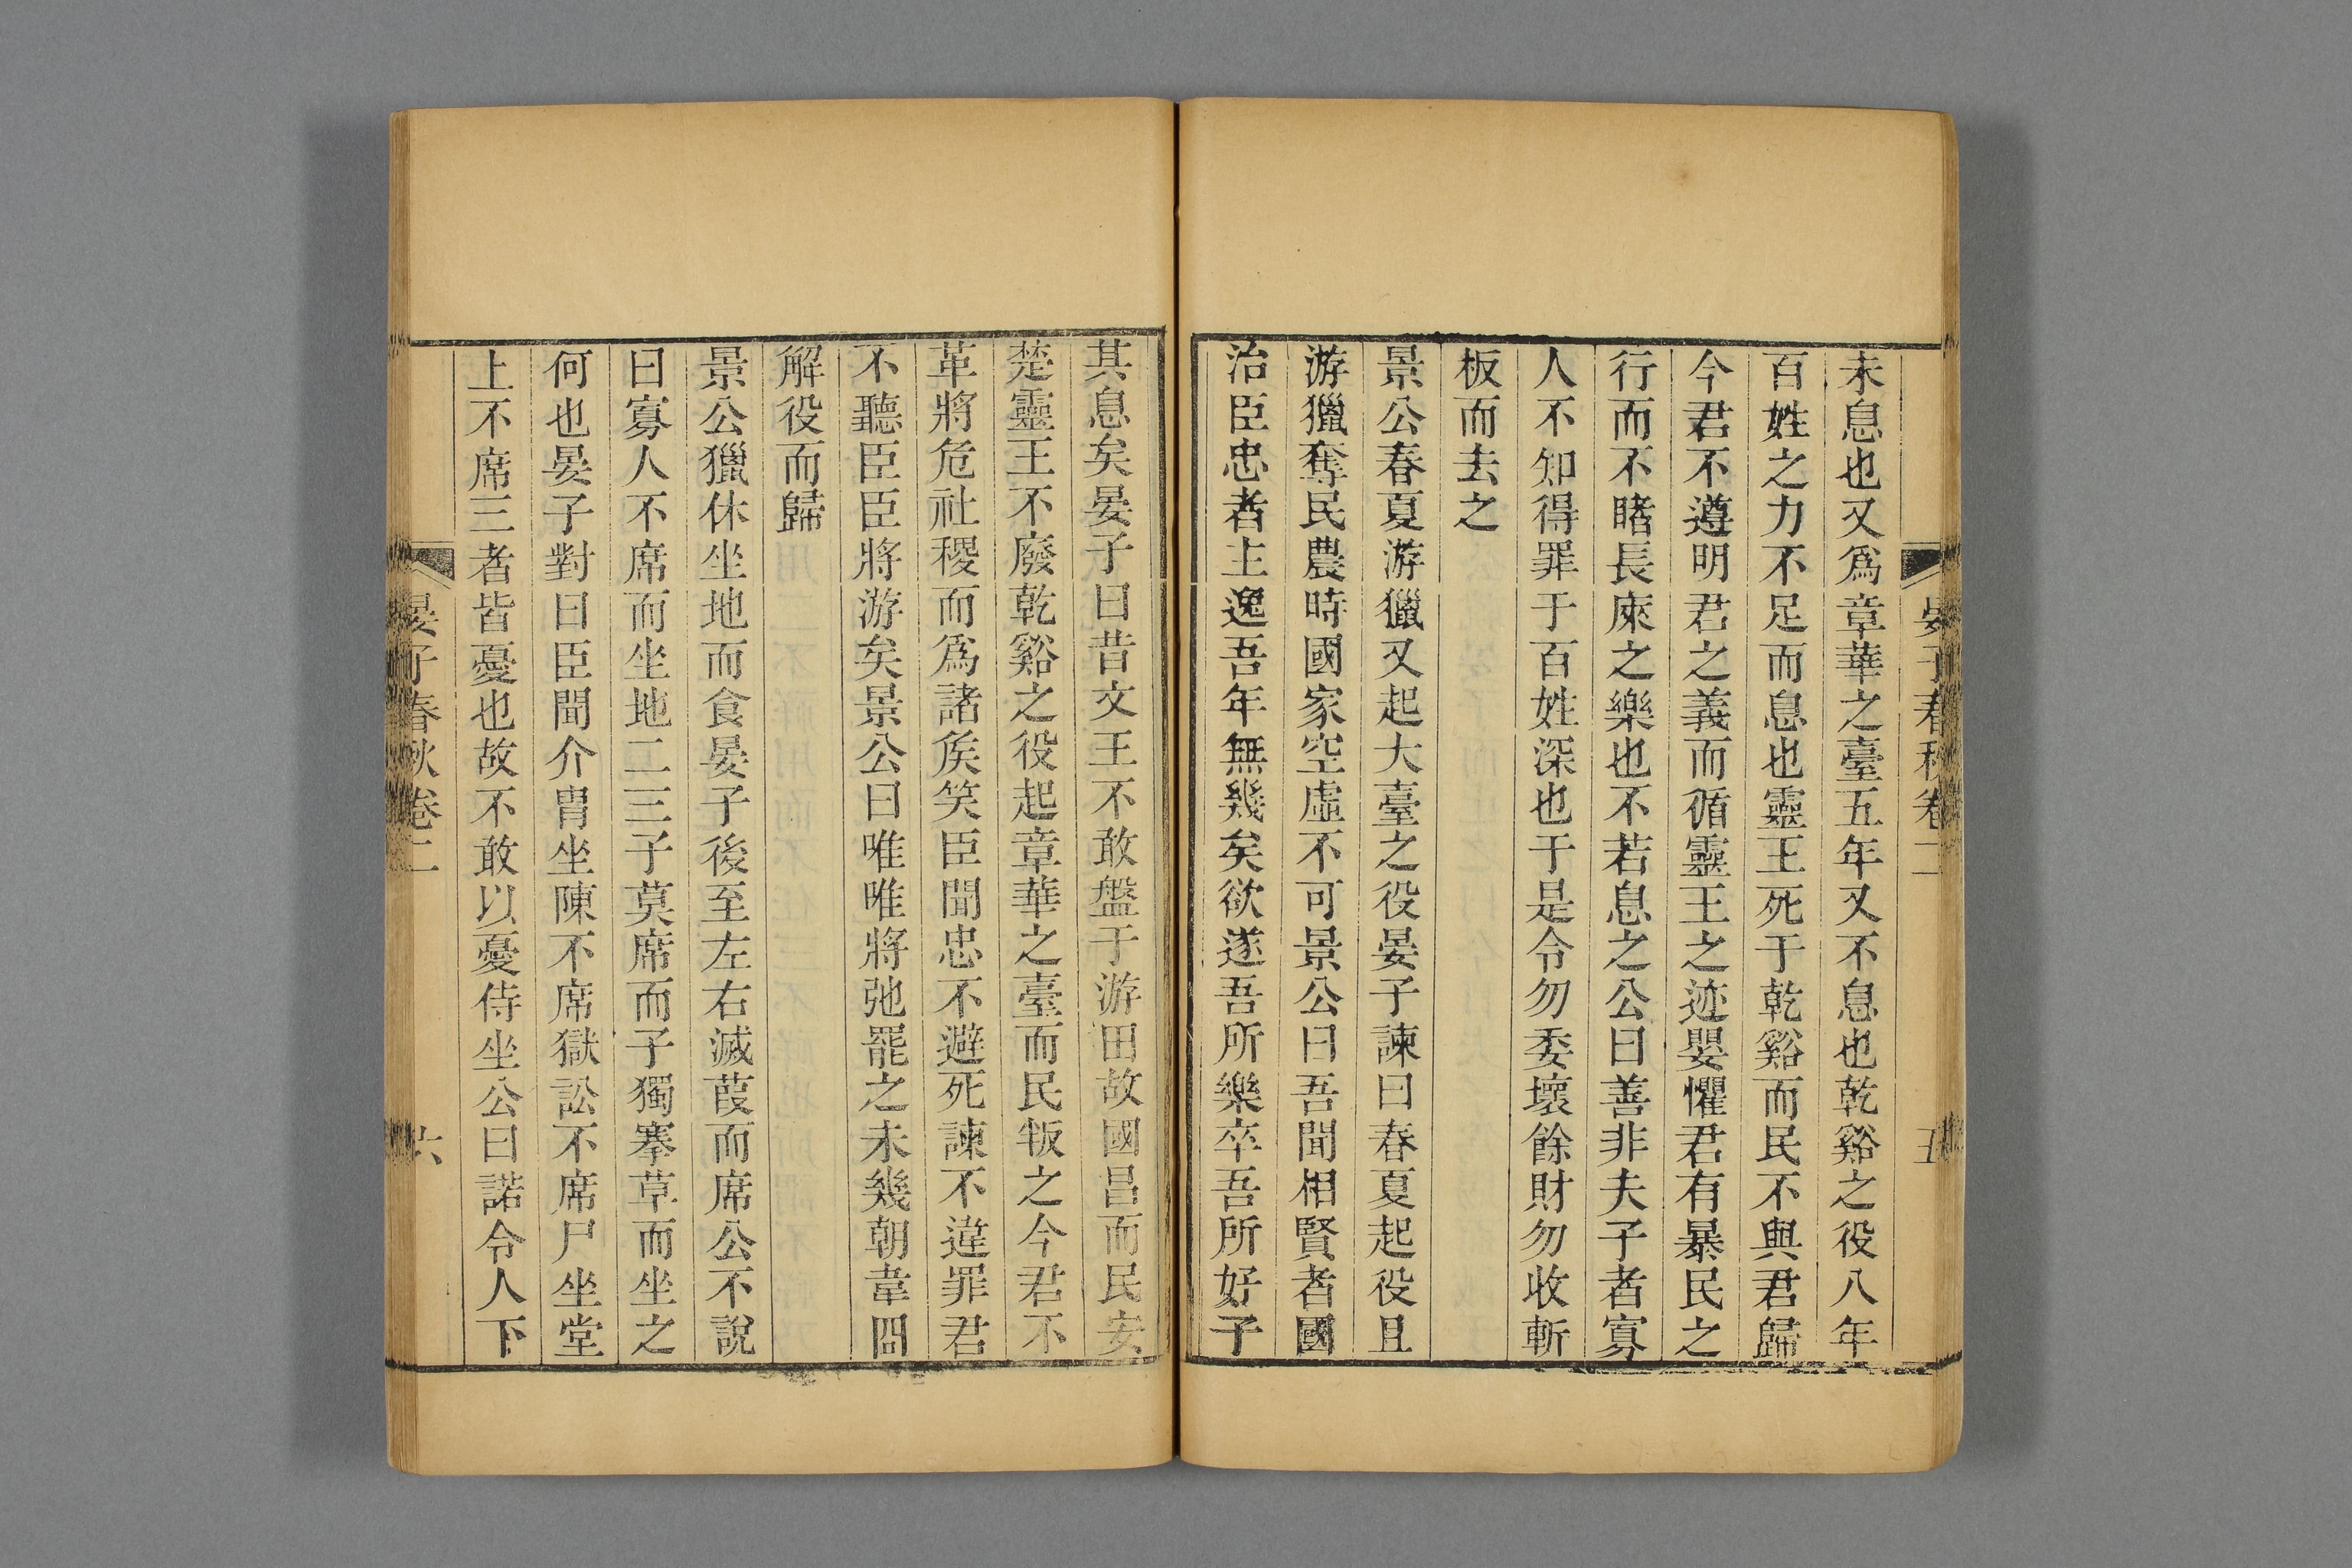 晏子春秋卷二 五
未息也又爲章華之臺五年又不息也乾谿之役八年
百姓之力不足而息也靈王死于乾谿而民不與君歸
今君不遵明君之義而循靈王之迹嬰懼君有暴民之
行而不睹長庲之樂也不若息之公曰善非夫子者寡
人不知得罪于百姓深也于是令勿委壞餘財勿收斬
板而去之
景公春夏游獵又起大臺之役晏子諫曰春夏起役且
游獵奪民農時國家空虛不可景公曰吾聞相賢者國
治臣忠者主逸吾年無幾矣欲遂吾所樂卒吾所好子
其息矣晏子曰昔文王不敢盤于游田故國昌而民安
楚靈王不廢乾谿之役起章華之臺而民叛之今君不
革將危社稷而爲諸矦笑臣聞忠不避死諫不違罪君
不聽臣臣將游矣景公曰唯唯將弛罷之未幾朝韋冏
解役而歸
景公獵休坐地而食晏子後至左右滅葭而席公不說
曰寡人不席而坐地二三子莫席而子獨搴草而坐之
何也晏子對曰臣聞介胄坐陳不席獄訟不席尸坐堂
上不席三者皆憂也故不敢以憂侍坐公曰諾令人下
晏子春秋卷二 六